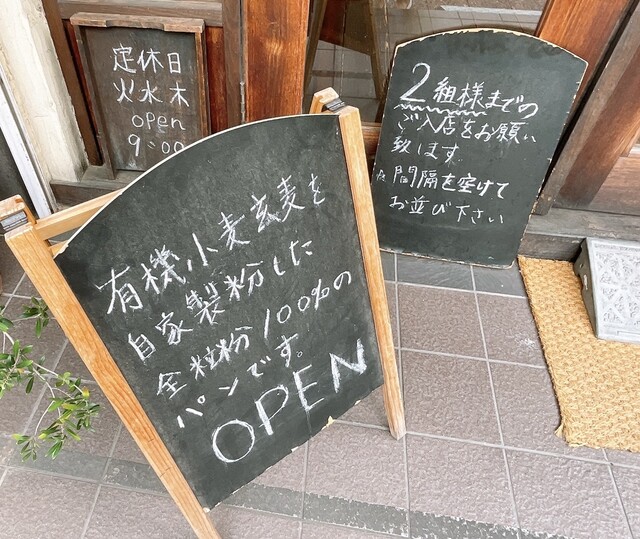 定休日
火水木
open
9:00
2組様までの
ご入店をお願い
致します。
間隔を空けて
お並び下さい
有機小麦玄麦を
自家製粉した
全粒粉100%の
パンです。
OPEN